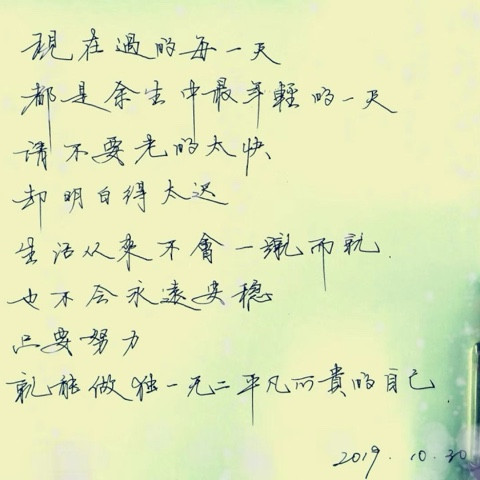 現在過的每一天
都是余生中最年輕的一天
請不要老的太快
却明白得太迟
生活从來不會一蹴而就.
也不会永遠安穩
只要努力
就能做独一无二平凡而貴的自己.
2019.10.30